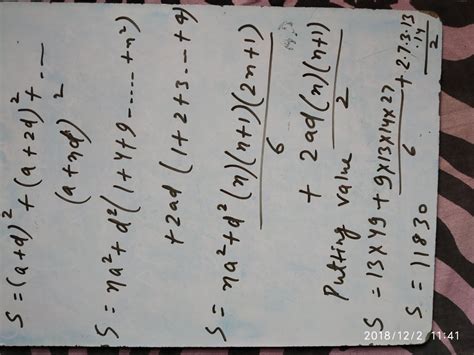 S = (a+d)² + (a+2d)² + ...
(a+nd)²
S = na² + d² (1+4+9 ----- +n²)
+ 2ad (1+2+3... +n)
S = na² + d² (n)(n+1)(2n+1)
6
+ 2ad (n)(n+1)
2
Putting value
S = 13×49 + 9×13×14×27 + 2·7·3·13
6
·14
2
S = 11830
2018/12/2 11:41